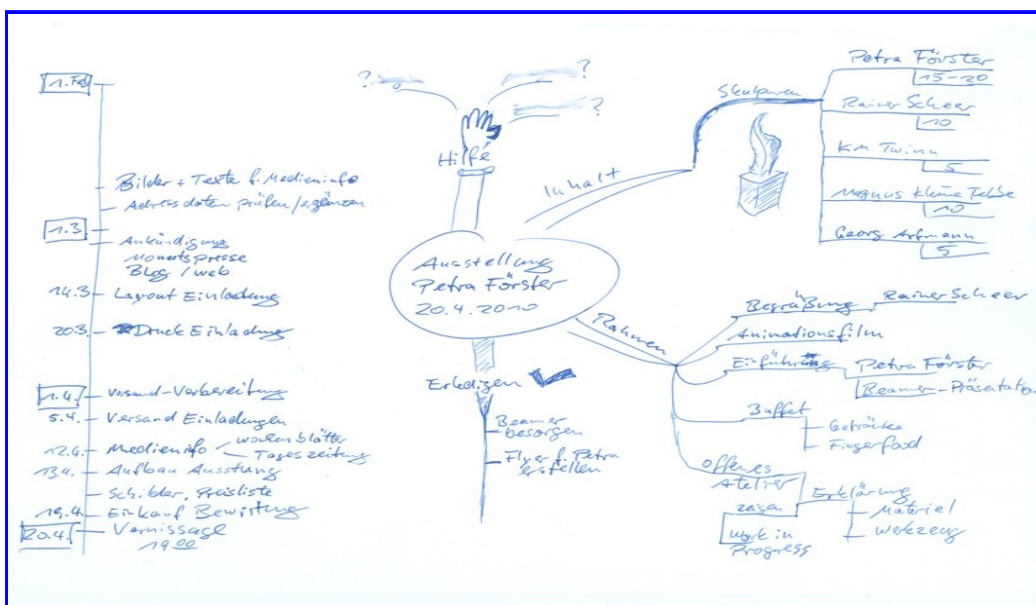 1. Feb
Bilder + Texte f. Medieninfo
Adressdaten prüfen/ergänzen
1.3
Ankündigung
Monatspresse
Blog / web
14.3 Layout Einladung
20.3. Druck Einladung
1.4. Versand-Vorbereitung
5.4. Versand Einladungen
12.4. Medieninfo
wochenblätter
Tageszeitung
13.4. Aufbau Ausstung
Schilder, Preisliste
19.4. Einkauf Bewirtung
20.4. Vernissage
19 00
?
?
?
Hilfe
Ausstellung
Petra Förster
20.4.2010
Erledigen
Beamer
besorgen
Flyer f. Petra
erstellen
Inhalt
Skulpuren
Petra Förster
15-20
Rainer Scheer
10
KM Twinn
5
Magnus Kleine
10
Georg Artmann
5
Rahmen
Begrüßung
Rainer Scheer
Animationsfilm
Einführung
Petra Förster
Beamer-Präsentation
Buffet
Getränke
Fingerfood
Offenes
Atelier
zeigen
work in
Progress
Erklärung
Material
werkzeug